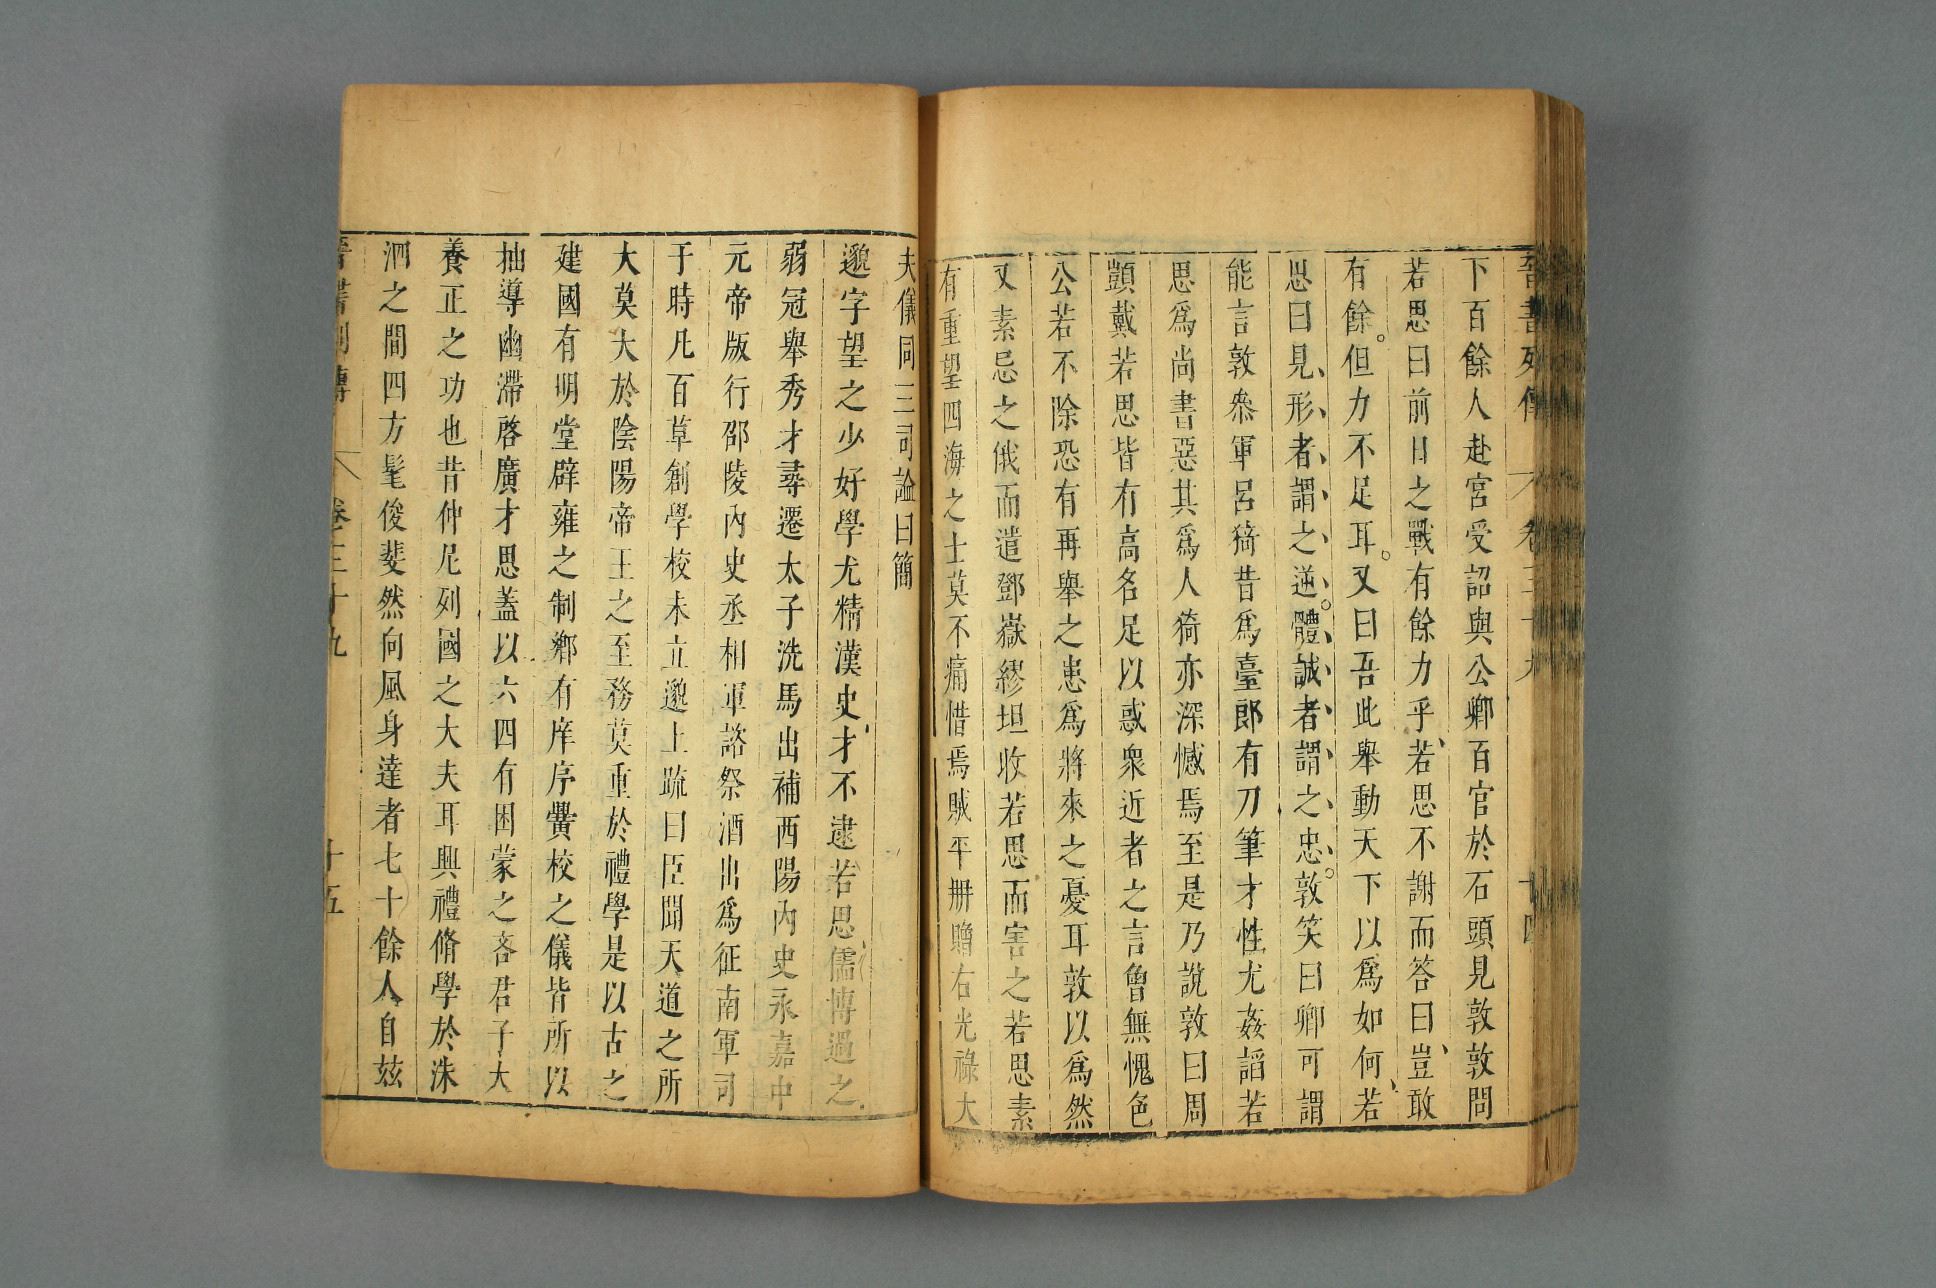 晉書列傳 卷三十九 十四
下百餘人赴宮受詔與公卿百官於石頭見敦敦問
若思曰前日之戰有餘力乎若思不謝而答曰豈敢
有餘。但力不足耳。又曰吾此舉動天下以爲如何若
思曰見形者謂之逆。體誠者謂之忠。敦笑曰卿可謂
能言敦叅軍呂猗昔爲臺郎有刀筆才性尤姦謟若
思爲尚書惡其爲人猗亦深憾焉至是乃說敦曰周
顗戴若思皆有高名足以惑衆近者之言曾無愧色
公若不除恐有再舉之患爲將來之憂耳敦以爲然
又素忌之俄而遣鄧嶽繆坦收若思而害之若思素
有重望四海之士莫不痛惜焉賊平册贈右光祿大
夫儀同三司謚曰簡
邈字望之少好學尤精漢史才不逮若思儒博過之
弱冠舉秀才尋遷太子洗馬出補西陽內史永嘉中
元帝版行邵陵內史丞相軍諮祭酒出爲征南軍司
于時凡百草創學校未立邈上疏曰臣聞天道之所
大莫大於陰陽帝王之至務莫重於禮學是以古之
建國有明堂辟雍之制鄉有庠序黌校之儀皆所以
抽導幽滯啓廣才思蓋以六四有困蒙之吝君子大
養正之功也昔仲尼列國之大夫耳興禮脩學於洙
泗之間四方髦俊斐然向風身達者七十餘人自玆
晉書列傳 卷三十九 十五